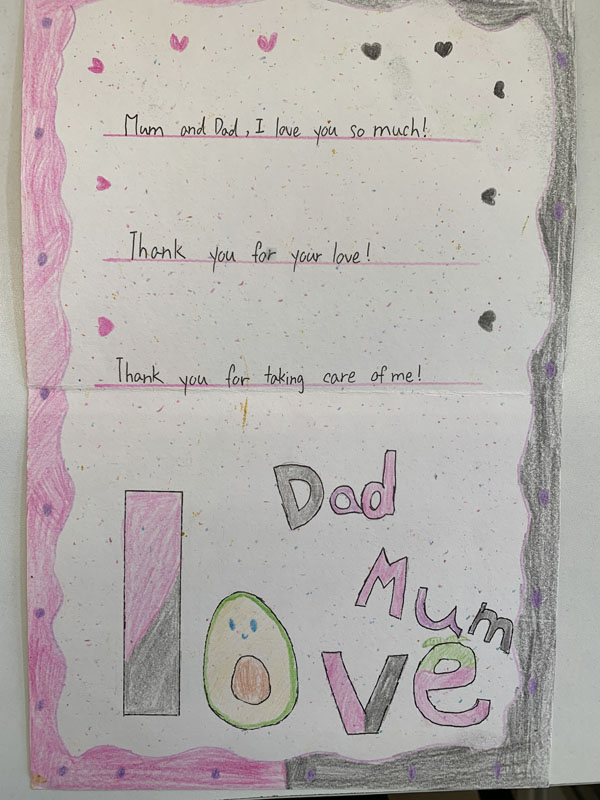 Mum and Dad, I love you so much!
Thank you for your love!
Thank you for taking care of me!
Dad
Mum
love